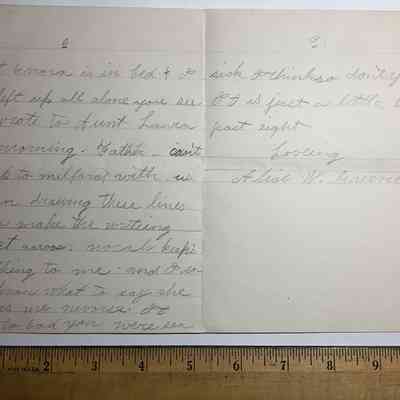 t nora is in bed & I
left up all alone you see
wrote to Aunt Laura
morning. Father can't
to milford with us
drawing these lines
make the writing
across. nora keeps
thing to me and I
know what to say she
me nervous. It
to bad you were
sick I think so don't y
It is just a little
past eight
Loveing
Alice W. Greene
2 3 4 5 6 7 8 9